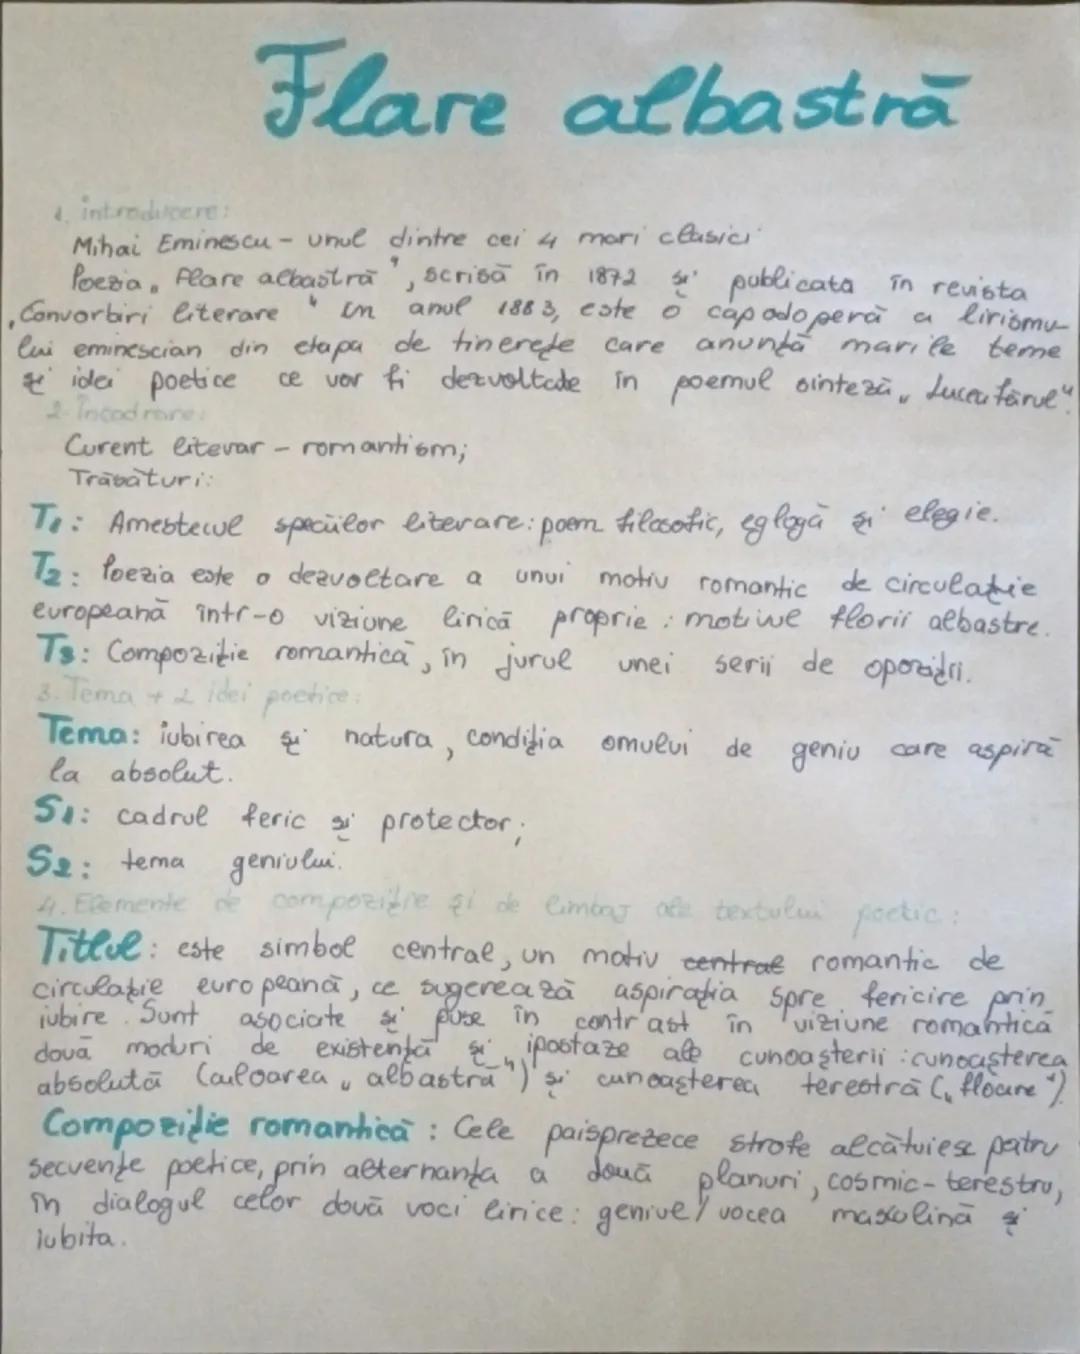 Floare albastră
1. introducere:
Mihai Eminescu - unul dintre cei 4 mari clasici
Poezia „Floare albastră", scrisă în 1872 și publicata în revista
„Convorbiri literare" în anul 1883, este o capodoperă a lirismu-
lui eminescian din etapa de tinerețe care anunță marile teme
și idei poetice ce vor fi dezvoltate în poemul sinteză „Luceafărul".
2. Încadrare:
Curent literar - romantism;
Trăsături:
T1: Amestecul speciilor literare: poem filosofic, eglogă și elegie.
T2: Poezia este o dezvoltare a unui motiv romantic de circulație
europeană într-o viziune lirică proprie: motivul florii albastre.
T3: Compoziție romantică, în jurul unei serii de opoziții.
3. Tema + 2 idei poetice:
Tema: iubirea și natura, condiția omului de geniu care aspiră
la absolut.
S1: cadrul feric și protector;
S2: tema geniului.
4. Elemente de compoziție și de limbaj ale textului poetic:
Titlul: este simbol central, un motiv central romantic de
circulație europeană, ce sugerează aspirația spre fericire prin
iubire. Sunt asociate și puse în contrast în viziune romantică
două moduri de existență și ipostaze ale cunoașterii: cunoașterea
absolută (culoarea „albastră") și cunoașterea terestră („floare").
Compoziție romantică: Cele paisprezece strofe alcătuiesc patru
secvențe poetice, prin alternanța a două planuri, cosmic-terestru,
în dialogul celor două voci lirice: geniul/vocea masculină și
iubita.